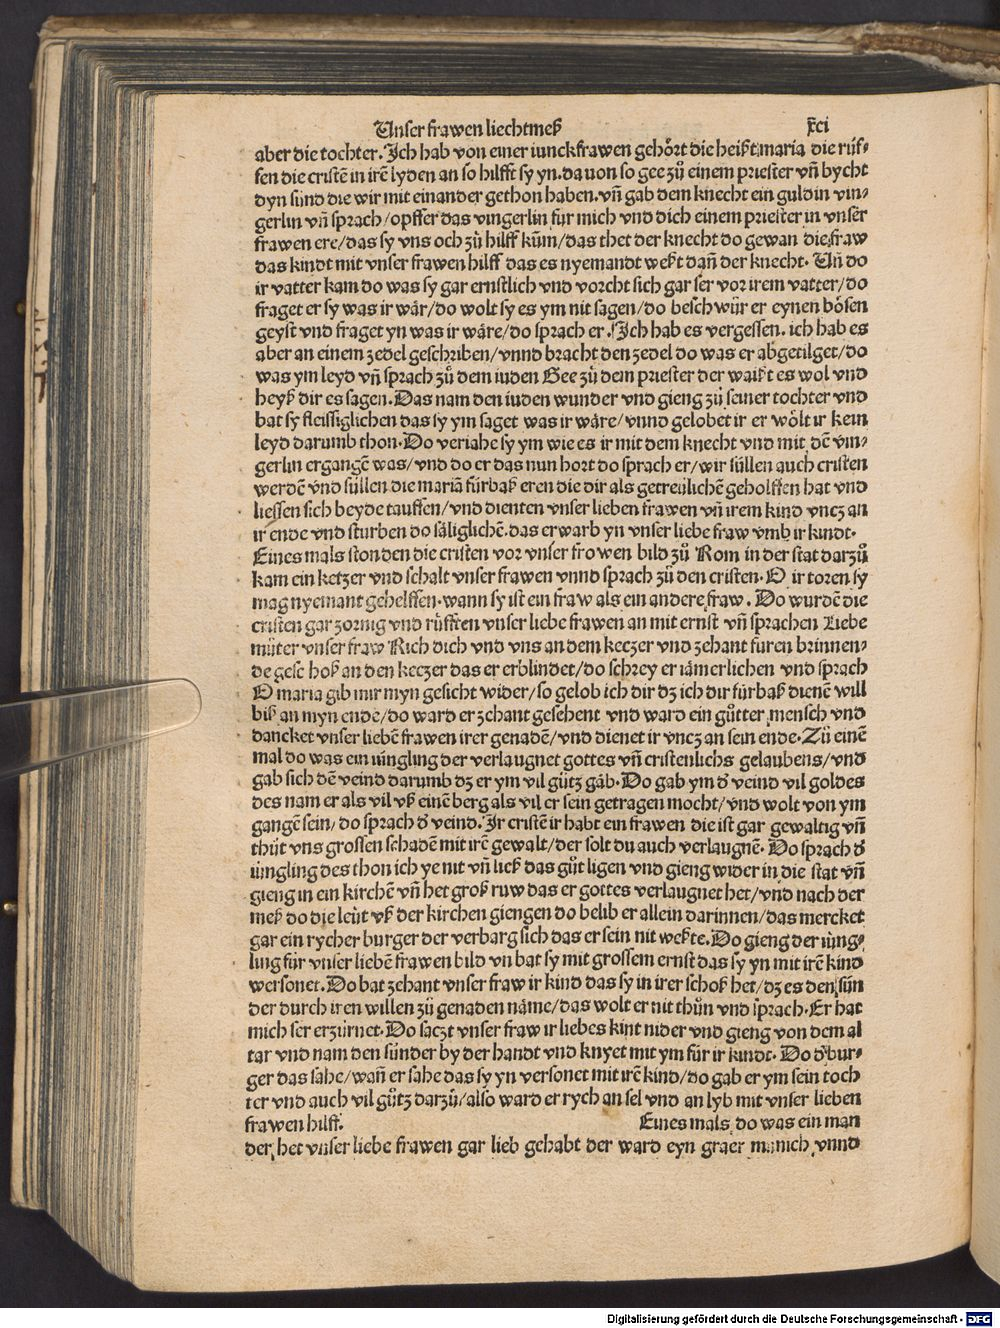 Unser frawen liechtmeß xci
aber die tochter. Ich hab von einer iunckfrawen gehoͤrt die heißt maria die ruͤf-
fen die cristē in irē lyden an so hilfft sy yn. da uon so gee zuͦ einem priester vñ bycht
dyn sünd die wir mit einander gethon haben. vñ gab dem knecht ein guldin vin-
gerlin vñ sprach/opffer das vingerlin für mich vnd dich einem priester in vnser
frawen ere/das sy vns och zuͦ hilff kūm/das thet der knecht do gewan die fraw
das kindt mit vnser frawen hilff das es nyemandt weßt dañ der knecht. Uñ do
ir vatter kam do was sy gar ernstlich vnd vorcht sich gar ser vor irem vatter/do
fraget er sy was ir waͤr/do wolt sy es ym nit sagen/do beschwuͤr er eynen boͤsen
geyst vnd fraget yn was ir waͤre/do sprach er. Ich hab es vergessen. ich hab es
aber an einem zedel geschriben/vnnd bracht den zedel do was er abgetilget/do
was ym leyd vñ sprach zuͦ dem iuden Gee zuͦ dem priester der waißt es wol vnd
heyß dir es sagen. Das nam den iuden wunder vnd gieng zuͦ seiner tochter vnd
bat sy fleissiglichen das sy ym saget was ir waͤre/vnnd gelobet ir er woͤlt ir kein
leyd darumb thon. Do veriahe sy ym wie es ir mit dem knecht vnd mit dē vin-
gerlin ergangē was/vnd do er das nun hort do sprach er/wir süllen auch cristen
werdē vnd süllen die mariā fürbaß eren die dir als getreülichē geholffen hat vnd
liessen sich beyde tauffen/vnd dienten vnser lieben frawen vñ irem kind vncz an
ir ende vnd sturben do saͤliglichē. das erwarb yn vnser liebe fraw vmb ir kindt.
Eines mals stonden die cristen vor vnser frowen bild zuͦ Rom in der stat darzuͦ
kam ein ketzer vnd schalt vnser frawen vnnd sprach zuͦ den cristen. O ir toren sy
mag nyemant gehelffen. wann sy ist ein fraw als ein andere fraw. Do wurdē die
cristen gar zornig vnd ruͤfften vnser liebe frawen an mit ernst vñ sprachen Liebe
muͦter vnser fraw Rich dich vnd vns an dem keczer vnd zehant füren brinnen-
de geschoß an den keczer das er erblindet/do schrey er iaͤmerlichen vnd sprach
O maria gib mir myn gesicht wider/so gelob ich dir dz ich dir fürbaß dienē will
biß an myn ende/do ward er zehant gesehent vnd ward ein guͦtter mensch vnd
dancket vnser liebē frawen irer genadē/vnd dienet ir vncz an sein ende. Zuͦ einē
mal do was ein iüngling der verlaugnet gottes vñ cristenlichs gelaubens/vnd
gab sich dē veind darumb dz er ym vil guͦtz gāb. Do gab ym ď veind vil goldes
des nam er als vil vß einē berg als vil er sein getragen mocht/vnd wolt von ym
gangē sein/do sprach ď veind. Ir cristē ir habt ein frawen die ist gar gewaltig vñ
thuͦt vns grossen schadē mit irē gewalt/der solt du auch verlaugnē. Do sprach ď
iüngling des thon ich ye nit vñ ließ das guͦt ligen vnd gieng wider in die stat vñ
gieng in ein kirchē vñ het groß ruw das er gottes verlaugnet het/vnd nach der
meß do die leüt vß der kirchen giengen do belib er allein darinnen/das mercket
gar ein rycher burger der verbarg sich das er sein nit weßte. Do gieng der iüng-
ling für vnser liebē frawen bild vn bat sy mit grossem ernst das sy yn mit irē kind
versonet. Do bat zehant vnser fraw ir kind das sy in irer schoß het/dz es den sün
der durch iren willen zuͦ genaden naͤme/das wolt er nit thuͦn vnd sprach. Er hat
mich ser erzürnet. Do saczt vnser fraw ir liebes kint nider vnd gieng von dem al
tar vnd nam den sünder by der handt vnd knyet mit ym für ir kindt. Do ď bur-
ger das sahe/wañ er sahe das sy yn versonet mit irē kind/do gab er ym sein toch
ter vnd auch vil guͦtz darzuͦ/also ward er rych an sel vnd an lyb mit vnser lieben
frawen hilff. Eines mals do was ein man
der het vnser liebe frawen gar lieb gehabt der ward eyn graer münich vnnd
Digitalisierung gefördert durch die Deutsche Forschungsgemeinschaft - DFG